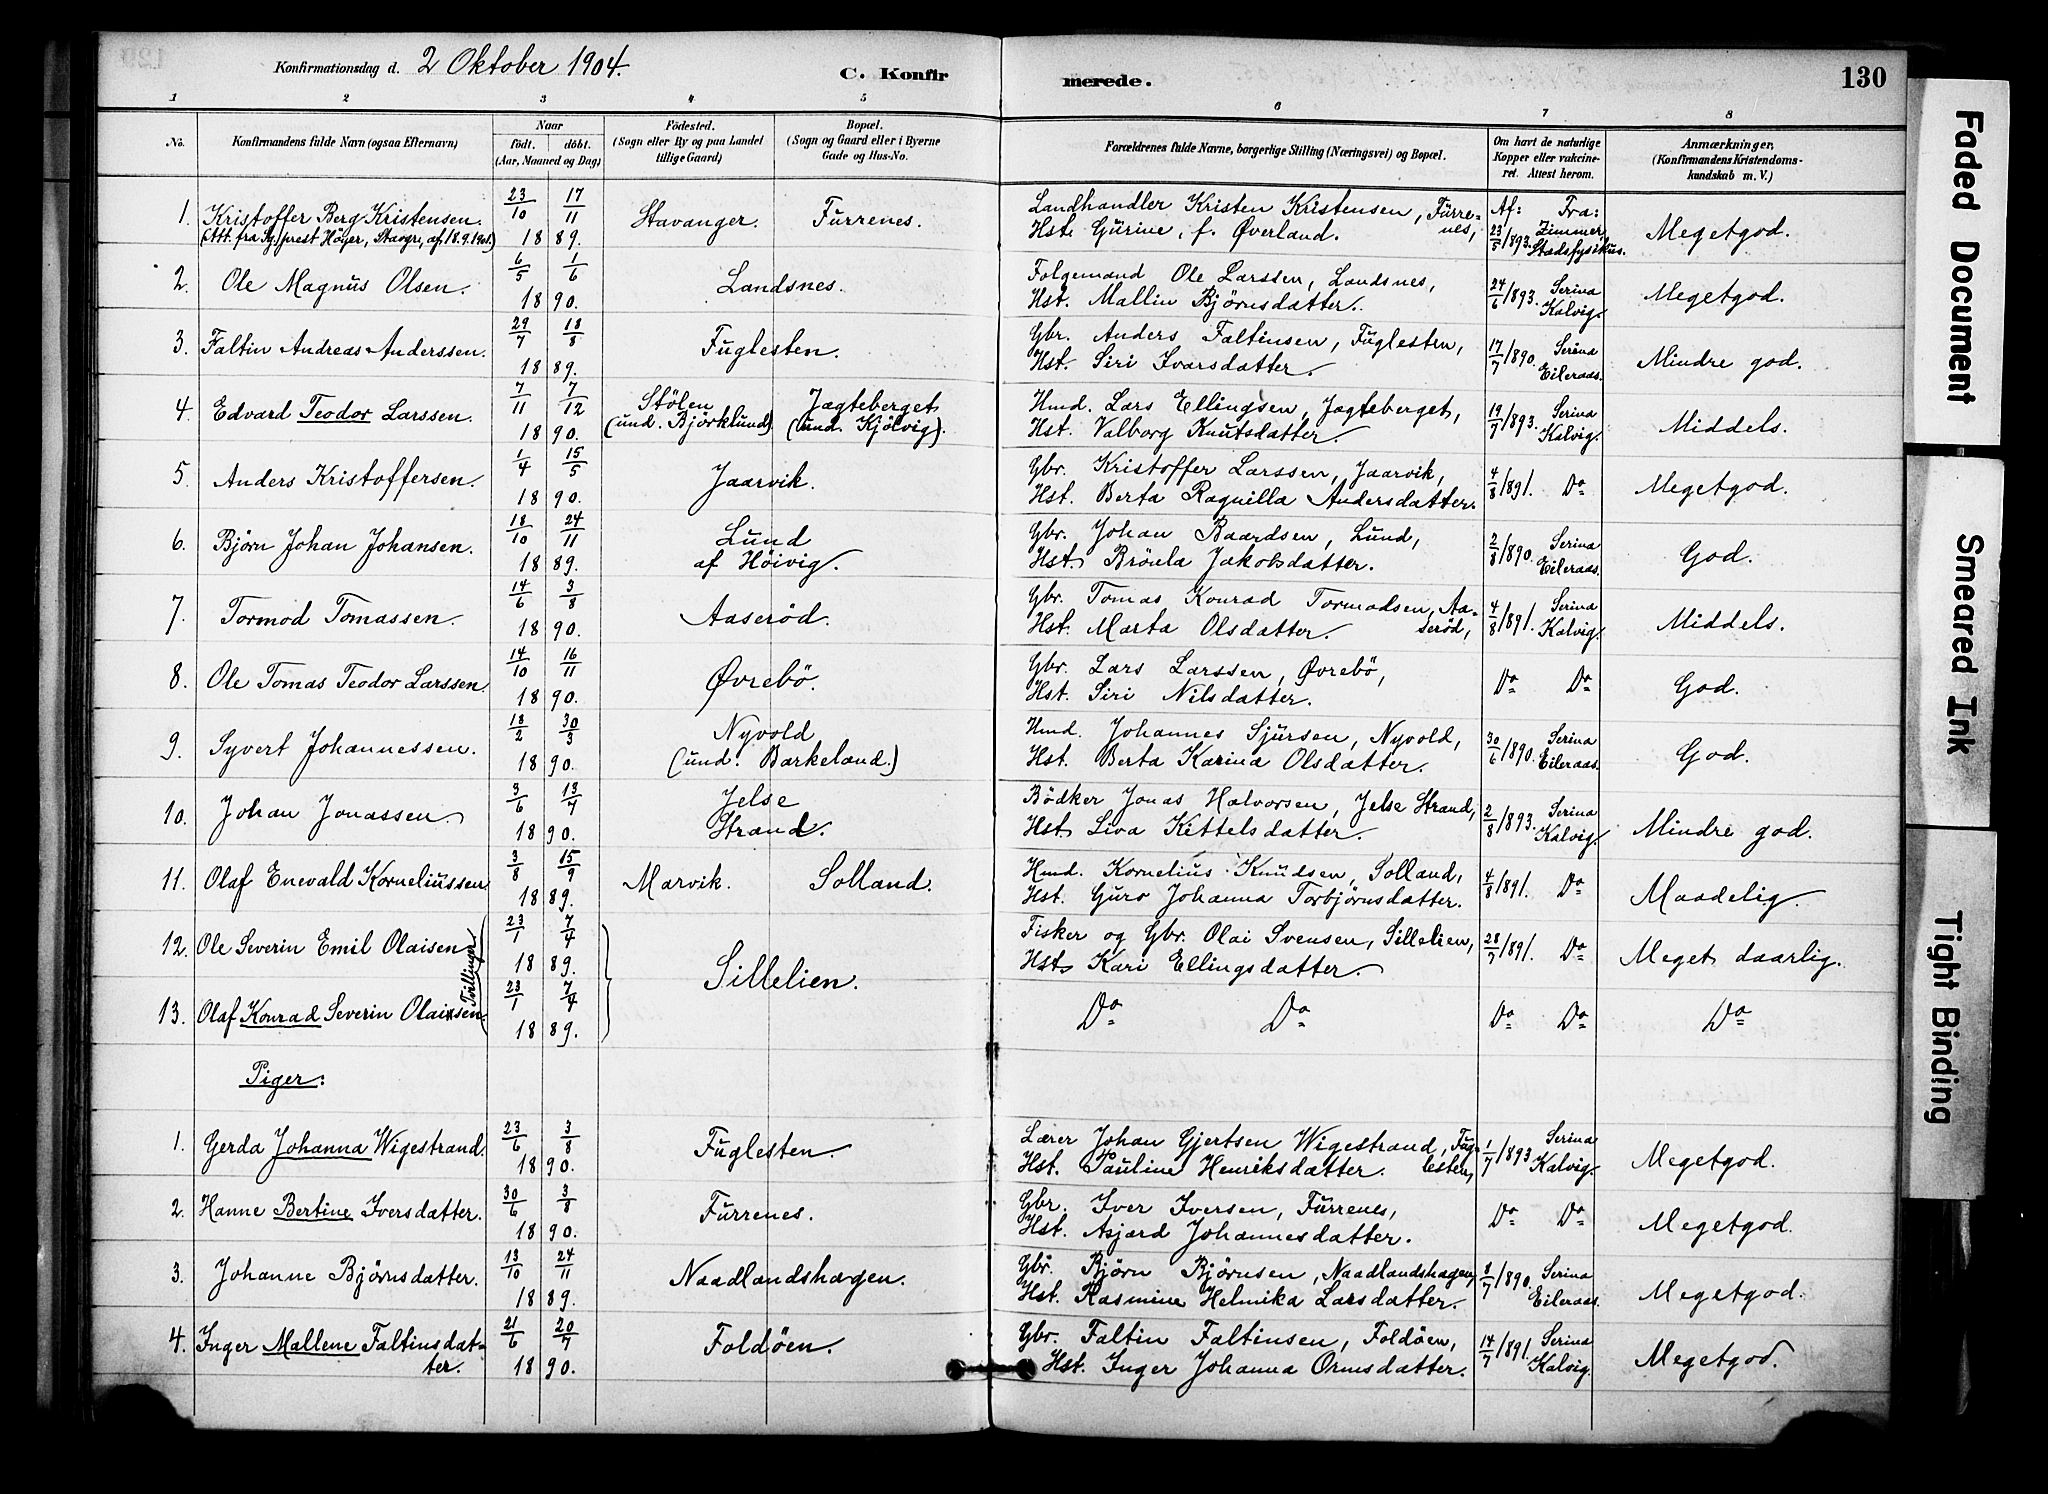 Konfirmationsdag d. 2 Oktober 1904.
C. Konfirmerede.
130
1 2 3 4 5 6 7 8
No. Konfirmandens fulde Navn (ogsaa Efternavn) Naar födt. döbt. (Aar, Maaned og Dag) Födested. (Sogn eller By og paa Landet tillige Gaard) Bopæl. (Sogn og Gaard eller i Byerne Gade og Hus-No. Forældrenes fulde Navne, borgerlige Stilling (Næringsvei) og Bopæl. Om havt de naturlige Kopper eller vakcineret. Attest herom. Anmærkninger, (Konfirmandens Kristendomskundskab m. V.)
1. Kristoffer Berg Kristensen. 23/10 17/11 Stavanger. Furrenes. Landhandler Kristen Kristensen, Furre- Af: Fra: Megetgod.
(Att. fra Sg.prest Höyer, Stavgr, af 18.9.1901.) 1889. Hst. Gurine, f. Øverland. nes, 23/5/893. Zimmer, Stadsfysikus.
2. Ole Magnus Olsen. 6/5 1/6 Landsnes. Folgemand Ole Larssen, Landsnes, 24/6/893. Serina Megetgod.
1890. Hst. Mallin Björnsdatter. Kalvig.
3. Faltin Andreas Anderssen. 29/7 18/8 Fuglesten. Gbr. Anders Faltinsen, Fuglesten, 17/7/890. Serina Mindre god.
1889. Hst. Siri Ivarsdatter. Eileraas.
4. Edvard Teodor Larssen. 7/11 7/12 Stölen Jagteberget Hmd. Lars Ellingsen, Jagteberget, 19/7/893. Serina Middels.
1890. (und. Björklund) (und. Kjölvig). Hst. Valborg Knutsdatter. Kalvig.
5. Anders Kristoffersen. 1/4 15/5 Jaarvik. Gbr. Kristoffer Larssen, Jaarvik, 4/8/891. Do Megetgod.
1890. Hst. Berta Ragnilla Andersdatter.
6. Björn Johan Johansen. 18/10 24/11 Lund Gbr. Johan Baardsen, Lund, 2/8/890. Serina God.
1889. af Höivig. Hst. Brönla Jakobsdatter. Eileraas.
7. Tormod Tomassen. 14/6 3/8 Aaseröd. Gbr. Tomas Konrad Tormodsen, Aa- 4/8/891. Serina Middels.
1890. Hst. Marta Olsdatter. seröd, Kalvig.
8. Ole Tomas Teodor Larssen. 14/10 16/11 Øvrebö. Gbr. Lars Larssen, Øvrebö, Do Do God.
1890. Hst. Siri Nilsdatter.
9. Syvert Johannessen. 18/2 30/3 Nyvold Hmd. Johannes Sjursen, Nyvold, 30/6/890. Serina God.
1890. (und. Barkeland.) Hst. Berta Karina Olsdatter. Eileraas.
10. Johan Jonassen 3/6 13/7 Jelse Bödker Jonas Halvorsen, Jelse Strand, 2/8/893. Serina Mindre god.
1890. Strand. Hst. Siva Kittelsdatter. Kalvig.
11. Olaf Enevald Korneliussen 3/8 15/9 Marvik. Solland. Hmd. Kornelius Knudsen, Solland, 4/8/891. Do Maadelig.
1889. Hst. Guro Johanna Torbjörnsdatter.
12. Ole Severin Emil Olaisen 23/1 7/4 Fisker og Gbr. Olai Svensen, Sillelien, 28/7/891. Do Meget daarlig.
Tvillinger. 1889. Sillelien. Hst. Kari Ellingsdatter.
13. Olaf Konrad Severin Olaisen. 23/1 7/4 Do Do Do Do Do
1889.
Piger:
1. Gerda Johanna Wigestrand. 23/6 3/8 Fuglesten. Lærer Johan Gjertsen Wigestrand, Fug- 1/7/893 Serina Megetgod.
1890. Hst. Pauline Henriksdatter. lesten, Kalvig.
2. Hanne Bertine Iversdatter. 30/6 3/8 Furrenes. Gbr. Iver Iversen, Furrenes, Do Do Megetgod.
1890. Hst. Asjerd Johannesdatter.
3. Johanne Björnsdatter. 13/10 24/11 Naadlandshagen. Gbr. Björn Björnsen, Naadlandshagen, 8/7/890. Serina Megetgod.
1889. Hst. Rasmine Helmika Larsdatter. Eileraas.
4. Inger Mallene Faltinsdat- 21/6 20/7 Foldöen. Gbr. Faltin Faltinsen, Foldöen, 14/7/891. Serina Megetgod.
ter. 1890. Hst. Inger Johanna Ormsdatter. Kalvig.
Faded Document
Smeared Ink
Tight Binding